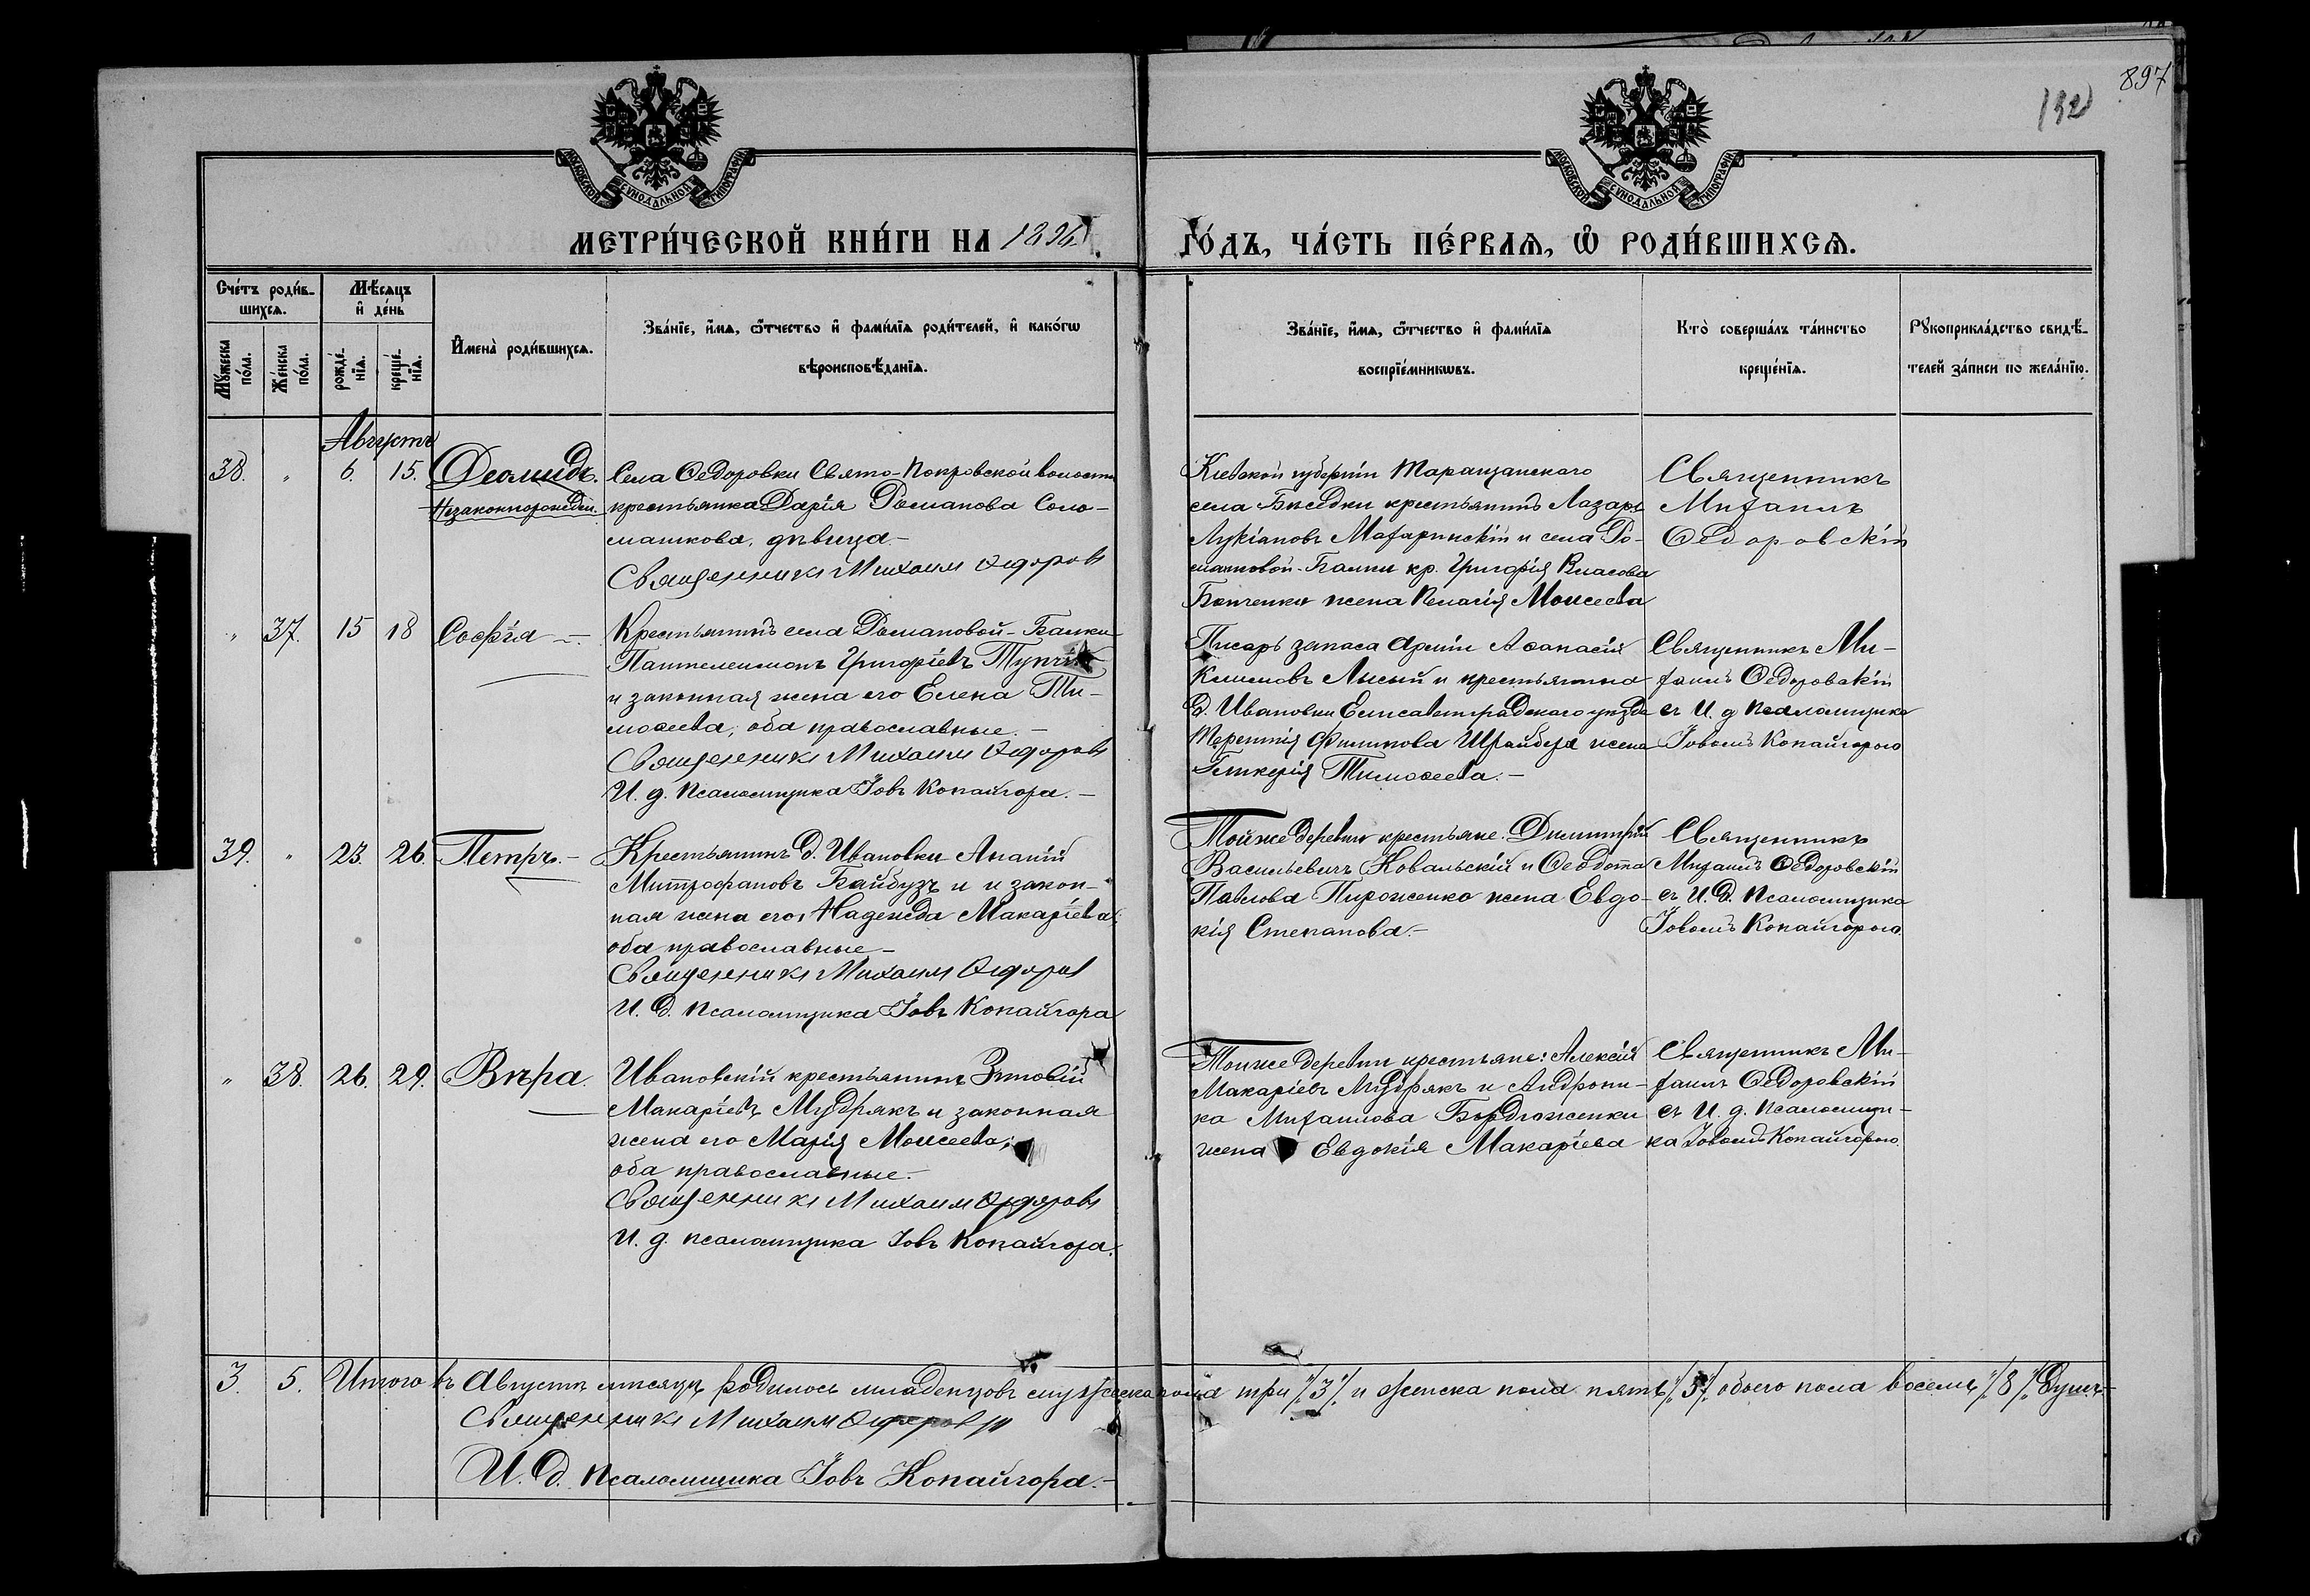 897
132
МОСКОВСКОЙ СѴНОДАЛЬНОЙ ТИПОГРАФІИ
МОСКОВСКОЙ СѴНОДАЛЬНОЙ ТИПОГРАФІИ
МЕТРИ́ЧЕСКОЙ КНИ́ГИ НА 1896
ГО́ДЪ, ЧА́СТЬ ПЕ́РВАѦ, Ѡ РОДИ́ВШИХСѦ.
Сче́тъ роди́в-
шихсѧ.
Мѣ́сѧцъ
и де́нь
Мꙋ́жеска
по́ла.
Же́нска
по́ла.
рожде́-
нїѧ.
креще́-
нїѧ.
И҆мена̀ роди́вшихсѧ.
Зва́нїе, и҆́мѧ, ѻ҆́тчество и҆ фами́лїѧ роди́телей, и҆ како́гѡ
вѣроисповѣ́данїѧ.
Зва́нїе, и҆́мѧ, ѻ҆́тчество и҆ фами́лїѧ
воспрїе́мникѡвъ.
Кто̀ соверша́лъ та́инство
креще́нїѧ.
Рꙋкоприкла́дство свидѣ́-
телей за́писи по жела́нїю.
Августъ
38. " 6. 15. Деомидъ.
Незаконнорожден.
Села Ѳедоровки Свято-Покровской волости
крестьянка Дарія Романова Соло-
машкова, дѣвица.-
Священникъ Михаилъ Ѳедоров
Кіевской губерніи Таращанскаго
села Бѣседки крестьянинъ Лазарь
Лукіановъ Махаринскій и села Ро-
мановой-Балки кр. Григорія Власова
жена Пелагія Моисеева
Священникъ
Михаилъ
Ѳедоровскій
" 37. 15 18 Софія -
Крестьянинъ села Романовой-Балки
Пантелеимонъ Григоріевъ
и законная жена его Елена Ти-
моѳеева, оба православные.-
Священникъ Михаилъ Ѳедоровъ
И. д. Псаломщика Іовъ Копайгора.-
Писарь запаса Арміи Аѳанасій
Климовъ Лысый и крестьянина
д. Ивановки Елисаветградскаго уѣзда
Терентія Филипова Шрайбера жена
Гликерія Тимоѳеева.-
Священникъ Ми-
хаилъ Ѳедоровскій
съ И. д. Псаломщика
Іовомъ Копайгорою
39. " 23. 26. Петръ.-
Крестьянинъ д. Ивановки Ананій
Митрофановъ Байбузъ и и закон-
ная жена его, Надежда Макаріева;
оба православные-
Священникъ Михаилъ Ѳедоров
И. д. Псаломщика Іовъ Копайгора
Тойже деревни крестьяне. Димитрій
Васильевичъ Ковальскій и Ѳеодота
Павлова Пироженко жена Евдо-
кія Степанова.-
Священникъ
Михаилъ Ѳедоровскій
съ И. д. Псаломщика
Іовомъ Копайгорою
" 38. 26. 29. Вѣра.
Ивановскій крестьянинъ Зиновій
Макаріевъ Мудрякъ и законная
жена его Марія Моисеева;
оба православные.-
Священникъ Михаилъ Ѳедоровъ
И. д. псаломщика Іовъ Копайгора.
Тойже деревни крестьяне: Алексій
Макаріевъ Мудрякъ и Андрони-
ка Михаилова Бордюженки
жена Евдокія Макаріева
Священникъ Ми-
хаилъ Ѳедоровскій
съ И. д. Псаломщи-
ка Іовомъ Копайгорою.
3. 5. Итого въ Августѣ мѣсяцѣ родилось младенцовъ мужеска пола три /3/ и женска пола пять /5/ обоего пола восемь /8/ душъ-
Священникъ Михаилъ
И. д. Псаломщика Іовъ Копайгора.-